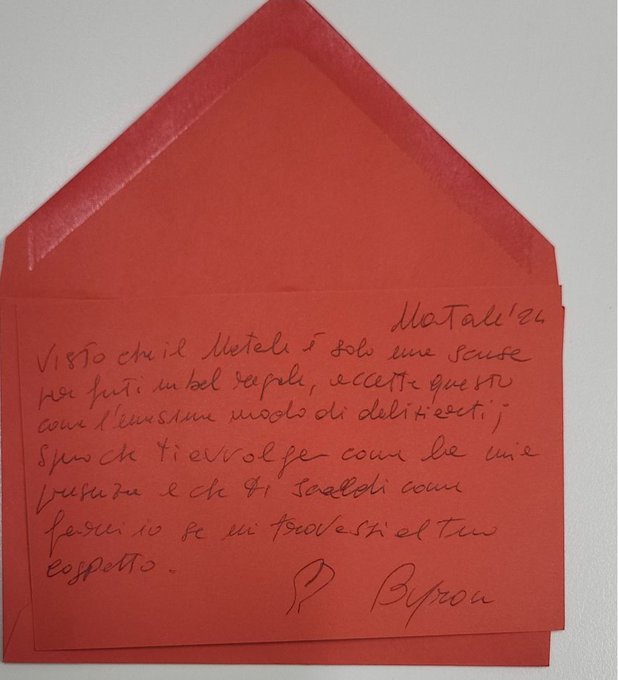 Natale '24
Visto che il Natale è solo una scusa
per farti un bel regalo, accetta questo
come l'ennesimo modo di deliziarti;
Spero che ti avvolga come la mia
presenza e che ti scaldi come
farei io se mi trovassi al tuo
cospetto.
Byron